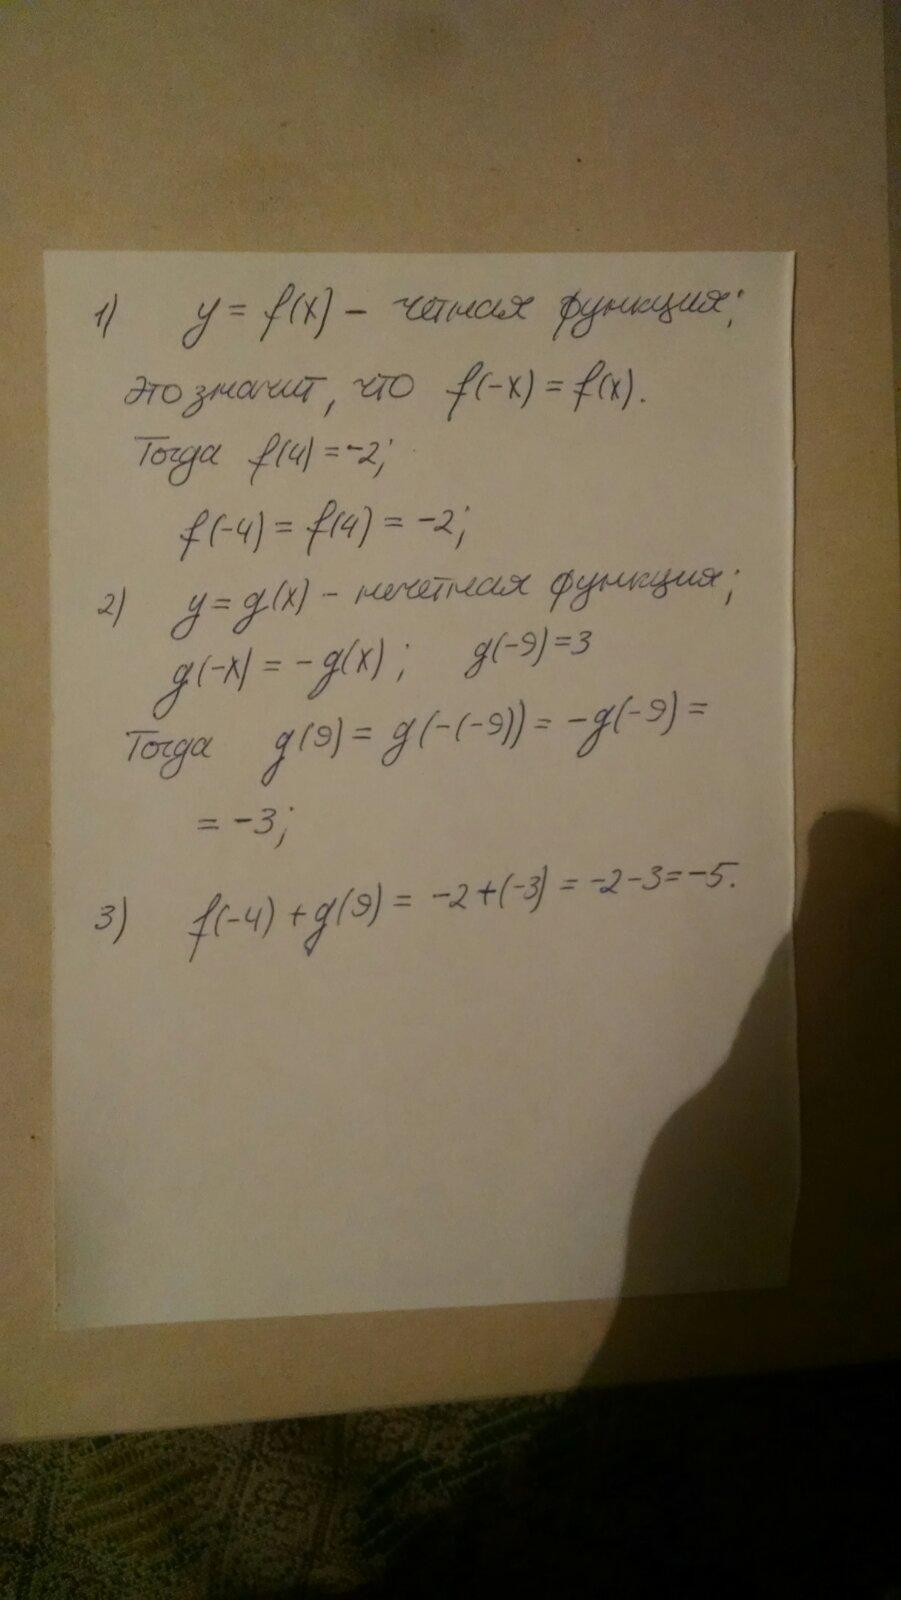 1) y = f(x) - чётная функция;
Это значит, что f(-x) = f(x).
Тогда f(4) = -2;
f(-4) = f(4) = -2;
2) y = g(x) - нечётная функция;
g(-x) = -g(x); g(-9) = 3
Тогда g(9) = g(-(-9)) = -g(-9) =
= -3;
3) f(-4) + g(9) = -2+(-3) = -2-3=-5.